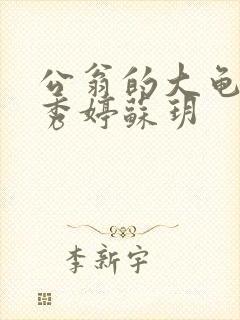 公翁的大龟
秀婷蘇玥
李新宇